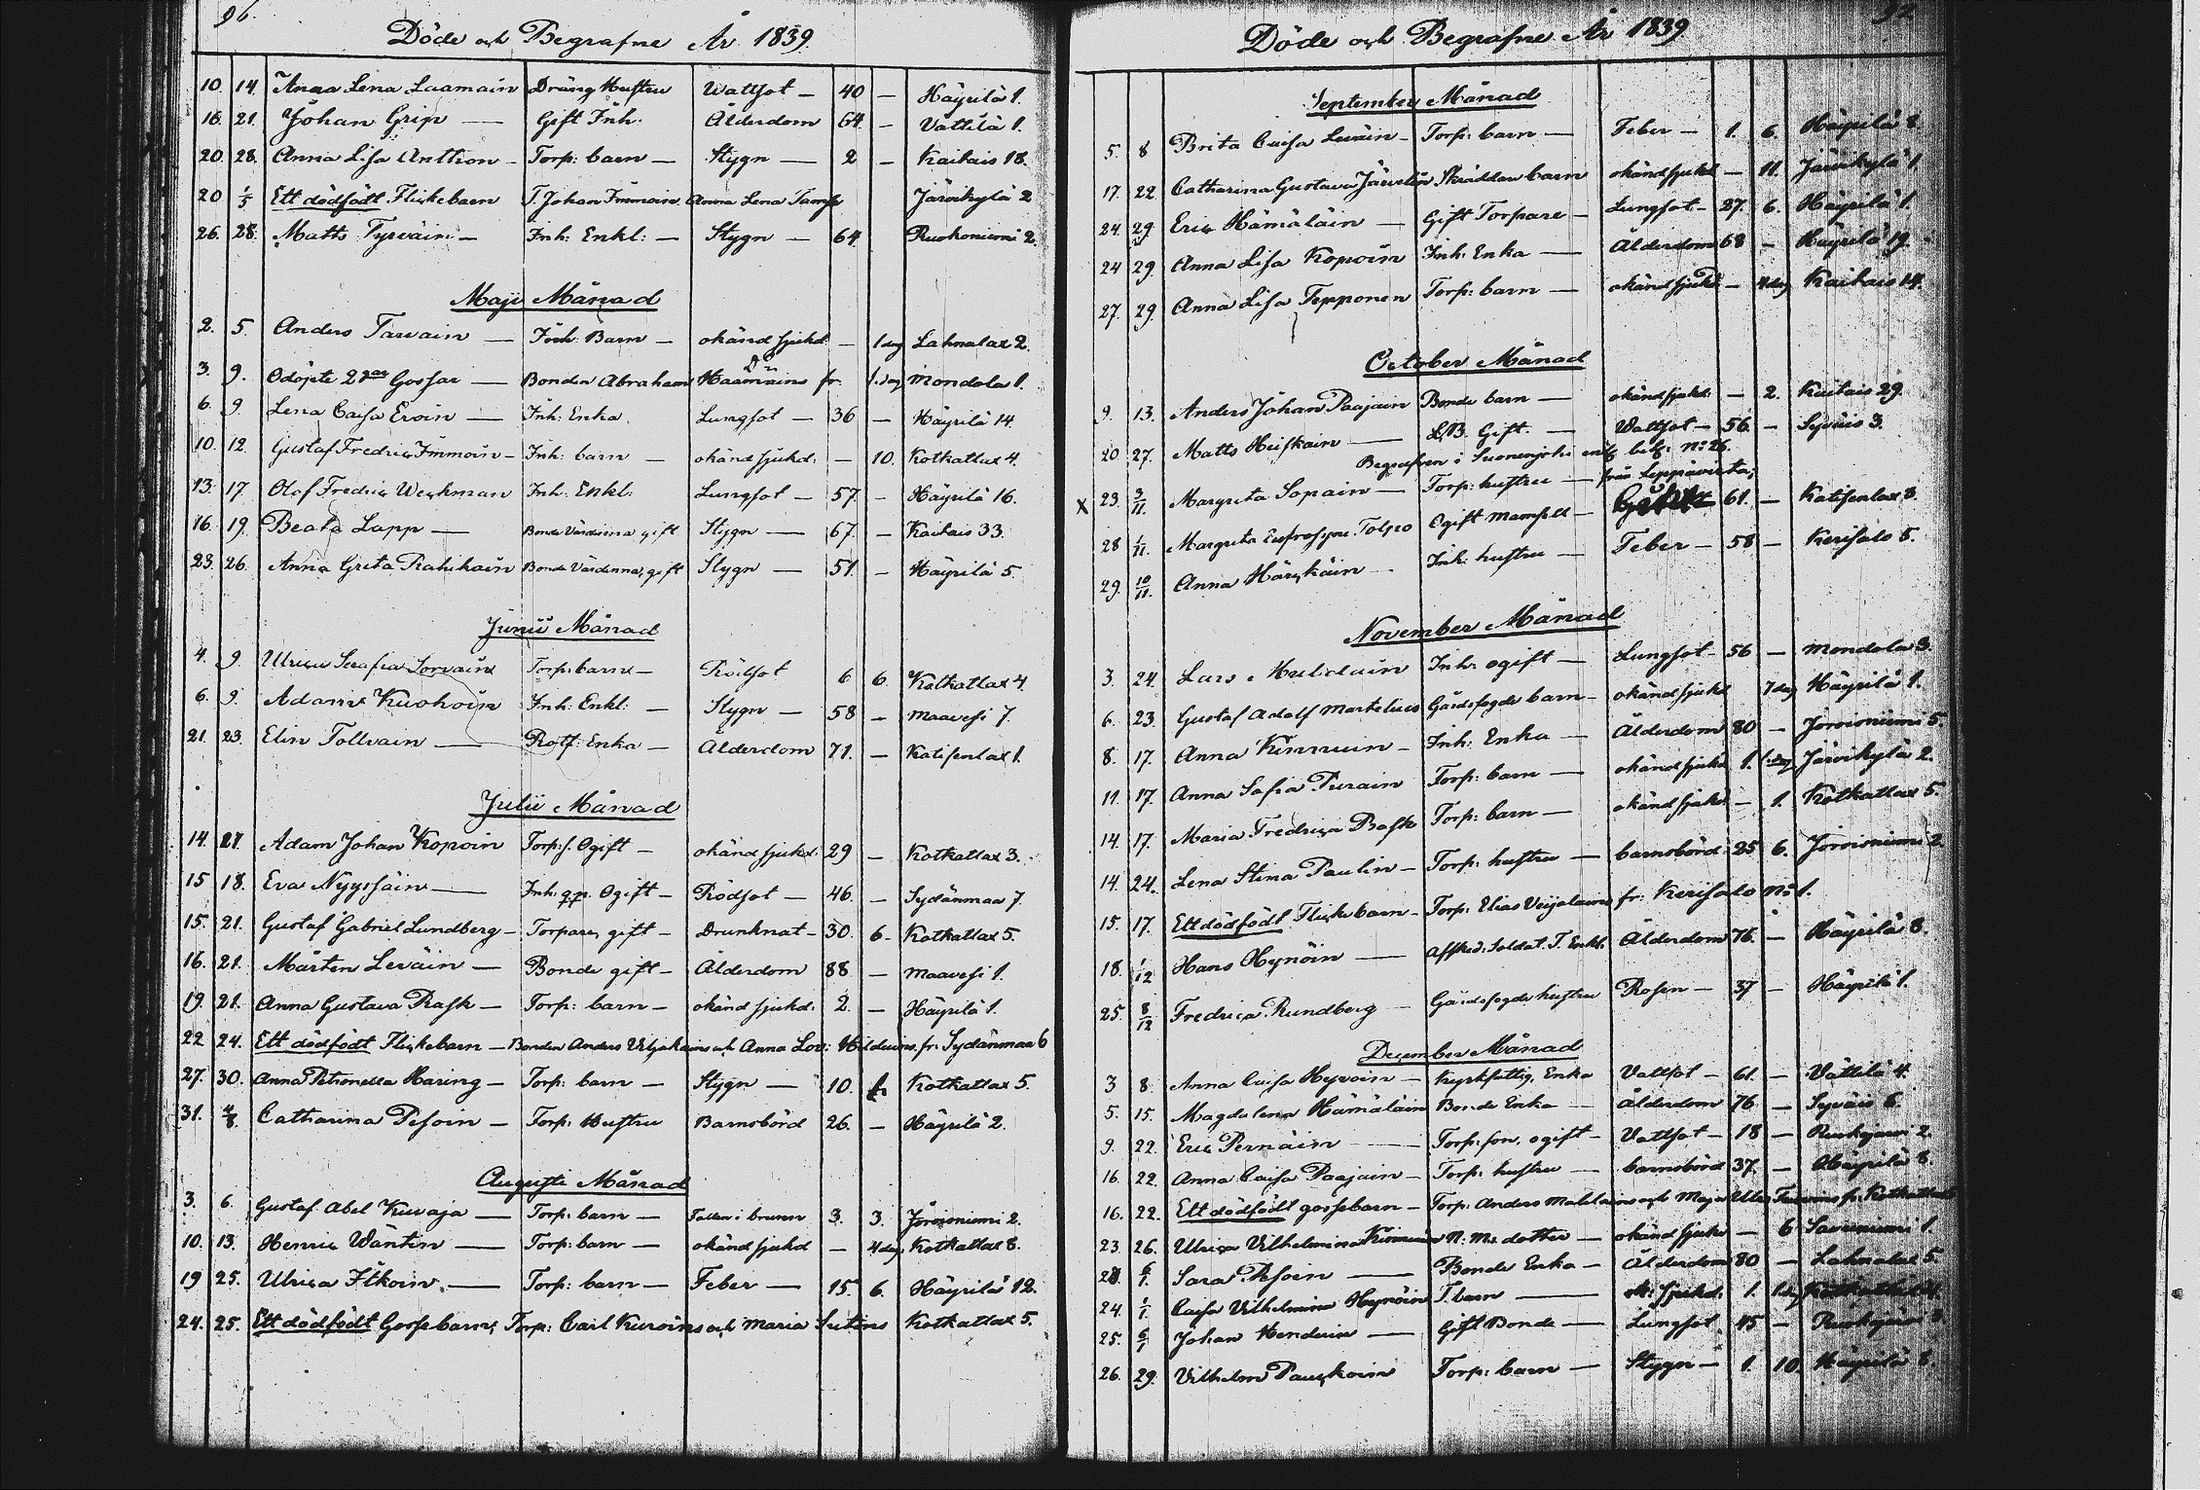 96.
Döde och Begrafne År 1839.
10. 14. Anna Lena Laamain Dräng Hustru Wattsot — 40 — Häyrilä 1.
16. 21. Johan Grip — Gift Inh: Ålderdom 64. — Vättilä 1.
20. 28. Anna Lisa Anttion — Torp: barn — Stygn — 2 — Kaitais 18.
20 1/5 Ett dödfödt Flickebarn T. Johan Immoin Anna Lena Järvikylä 2
26. 28. Matts Tyrväin — Inh: Enkl: — Stygn — 64 Ruokoniemi 2.
Maji Månad
2. 5. Anders Tarvain — Inh: Barn — okänd sjukd. — 1 dag Lahnalax 2.
3. 9. Odöpte 2ne Gossar — Bonden Abraham fr: 1. dag Mondola 1.
6. 9. Lena Caisa Eroin — Inh: Enka. Lungsot — 36 — Häyrilä 14.
10. 12. Gustaf Fredric Immoin — Inh: barn — okänd sjukd: — 10. Kotkatlax 4.
13. 17. Olof Fredric Weckman Inh: Enkl: Lungsot — 57. — Häyrilä 16.
16. 19. Beata Lapp — Bonde Värdinna gift Stygn — 67. — Kaitais 33.
23. 26. Anna Greta Rahikain Bonde Värdinna, gift Stygn — 51. — Häyrilä 5.
Junii Månad
4. 9. Ulrica Serafia Sorvain Torp: barn — Rödsot 6 6. Kotkatlax 4.
6. 9. Adam Kuohoin Inh: Enkl: — Stygn — 58 — Maavesi 7.
21. 23. Elin Tollvain — Rotf: Enka — Ålderdom 71. — Katisenlax 1.
Julii Månad
14. 21. Adam Johan Kopoin Torp: s. Ogift — okänd sjukd: 29 — Kotkatlax 3.
15 18. Eva Nyyssäin — Inh: qp. Ogift — Rödsot — 46. — Sydänmaa 7.
15. 21. Gustaf Gabriel Lundberg — Torpare, gift — Drunknat — 30. 6 — Kotkatlax 5.
16. 21. Mårten Leväin — Bonde gift — Ålderdom 88 — Maavesi 1.
19. 21. Anna Gustava Rask — Torp: barn — okänd sjukd: 2. — Häyrilä 1.
22 24. Ett dödfödt Flickebarn — Bonden Anders och Anna Lov: fr: Sydänmaa 6
27. 30. Anna Petronella Haring — Torp: barn — Stygn — 10. Kotkatlax 5.
31. 4/8. Catharina Pesoin — Torp: Hustru Barnsbörd 26. — Häyrilä 2.
Augusti Månad
3. 6. Gustaf Abel Kuvaja — Torp: barn — Fallen i brunn 3. 3. Jöroisniemi 2.
10. 13. Henric Wäntin — Torp: barn — okänd sjukd — 4 dag Kotkatlax 8.
19 25. Ulrica Itkoin — Torp: barn — Feber — 15. 6. Häyrilä 12.
24. 25. Ett dödfödt Gossebarn, Torp: Carl Kuroins och Maria Sutins Kotkatlax 5.
Döde och Begrafne År 1839
September Månad
5. 8 Brita Caisa Leväin — Torp: barn — Feber — 1. 6. Häyrilä 8
17. 22. Catharina Gustava Skräddare barn okänd sjukd — 11. Järvikylä 1.
24. 29. Eric Hämäläin — Gift Torpare — Lungsot — 27. 6. Häyrilä 1.
24 29. Anna Lisa Kopoin Inh: Enka — Ålderdom 68 — Häyrilä 19.
27. 29. Anna Lisa Tepponen Torp: barn — okänd sjukd. — 4 dag Kaitais 14.
October Månad
9. 13. Anders Johan Paajain Bonde barn — okänd sjukd: — 2. Kaitais 29.
20 27. Matts Heiskain — L,B. Gift. — Wattsot — 56. — Syväis 3.
Begrafven i Suonenjoki enlg betg: No 26.
från Leppävirta,
X 23. 3/11. Margreta Sopain — Torp: hustru — 61. — Katisenlax 3.
28 1/11. Margreta Eufrosyne Tolpo Ogift Mamsell —
29. 10/11. Anna Häyckäin — Inh: hustru — Feber — 58 — Kerisalo 5.
November Månad
3. 24. Lars Inh: ogift — Lungsot — 56 — Mondola 3.
6. 23. Gustaf Adolf Martelius Gårdsfogde barn — okänd sjukd 7 dag Häyrilä 1.
8. 17. Anna Kinnuin — Inh: Enka — Ålderdom 80 — Joroisniemi 5.
11. 17. Anna Safia Purain Torp: barn — okänd sjukd. 1. 1. dag Järvikylä 2.
14. 17. Maria Fredrica Rask Torp: barn — okänd sjukd. — 1. Kotkatlax 5.
14. 24. Lena Stina Paulin — Torp: hustru — barnsbörd 25 6. Joroisniemi 2
15. 17. Ett dödfödt Flickebarn — Torp: Elias Veijalains fr: Kerisalo No 1.
18. 1/12 Hans Hynöin — Affsked: Soldat. T. Enkl. Ålderdom 76. — Häyrilä 8.
25. 8/12 Fredrica Rundberg — Gårdsfogde hustru Rosen — 37 — Häyrilä 1.
December Månad
3 8. Anna Caisa Hyvoin — Kyrkfattig, Enka Vattsot — 61. — Vättilä 4.
5. 15. Magdalena Hämäläin Bonde Enka — Ålderdom 76 — Syväis 6.
9. 22. Eric Pernäin — Torp: son, ogift — Vattsot — 18 —
16. 22. Anna Caisa Paajain — Torp: hustru — barnsbörd 37. — Häyrilä 8.
16. 22. Ett dödfödt gossebarn — Torp: Anders och Maja fr:
23. 26. Ulrica Vilhelmina N: Ms: dotter — okänd sjukd — 6 Savuniemi 1.
6/1. Sara Pesoin — Bonde Enka — Ålderdom 80 — Lahnalax 5.
24. 1/1 Caisa Vilhelmina Hynöin T. barn — ok: sjukd. 1.
25. 6/1 Johan — Gift Bonde — Lungsot 45 —
26. 29. Vilhelm Torp: barn — Stygn — 1. 10. Häyrilä 8.